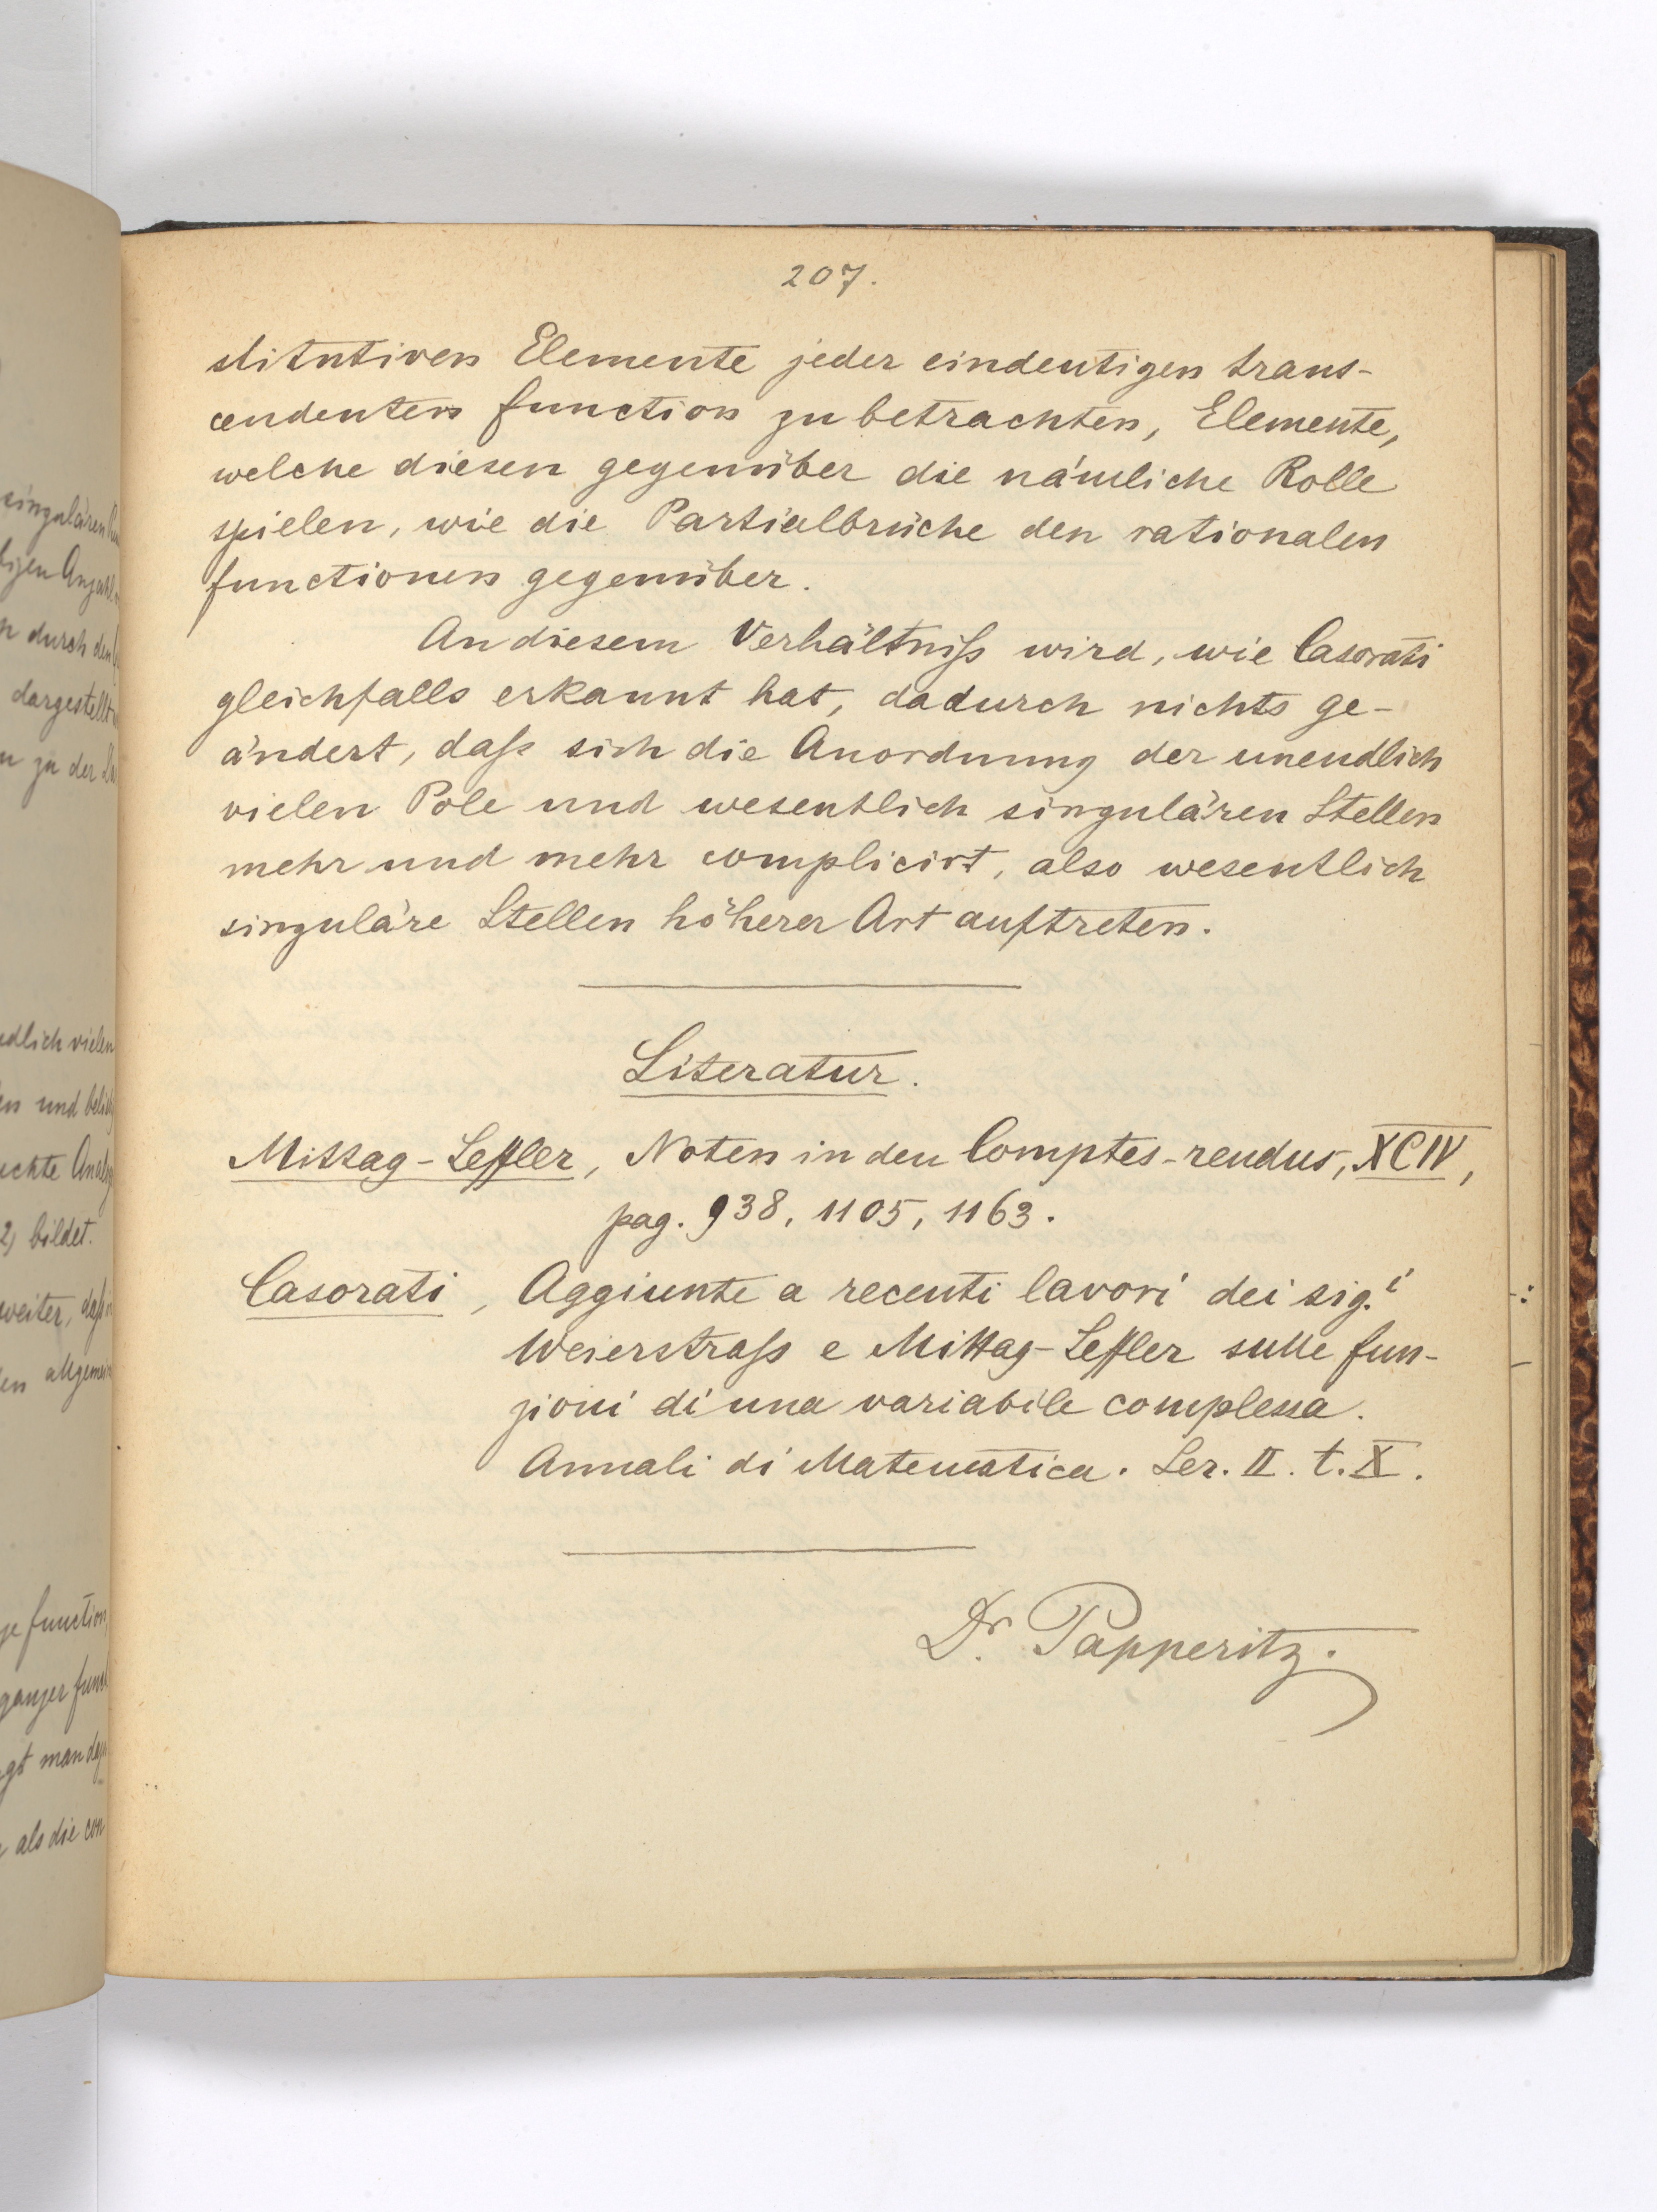 207.
stitutiven Elemente jeder eindeutigen trans-
cendenten function zu betrachten, Elemente,
welche diesen gegenüber die nämliche Rolle
spielen, wie die Partialbrüche den rationalen
functionen gegenüber.
An diesem Verhältniß wird, wie Casorati
gleichfalls erkannt hat, dadurch nichts ge-
ändert, daß sich die Anordnung der unendlich
vielen Pole und wesentlich singulären Stellen
mehr und mehr complicirt, also wesentlich
singuläre Stellen höherer Art auftreten.
Literatur.
Mittag-Leffler, Noten in den Comptes-rendus, XCIV,
pag. 938, 1105, 1163.
Casorati, Aggiunte a recenti lavori dei sig.i
Weierstraß e Mittag-Leffler sulle fun-
zioni di una variabile complessa.
Annali di Matematica. Ser. II. t. X.
Dr. Papperitz.
singulären
durch den
dargestellt
zu der
vielen
und
2) bildet.
weiter, daß
function
ganzer
man
als die con